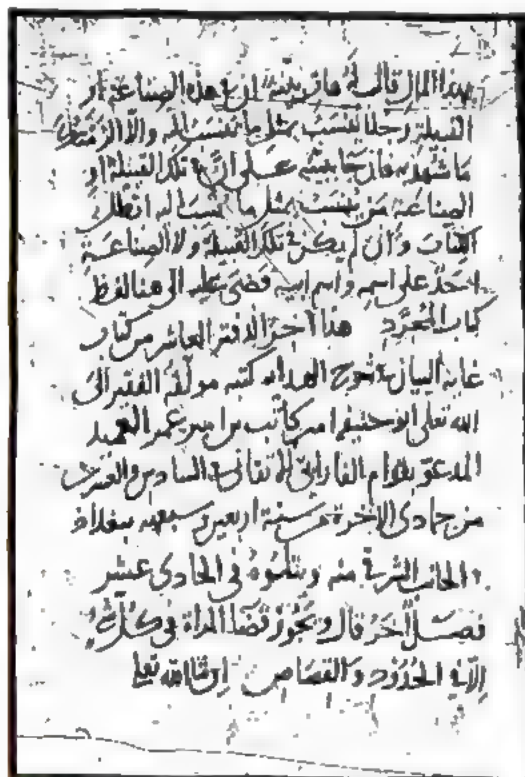 بهذا المال قال له هات بينة ان في هذه الصناعة او
القبيلة رجلا ينسب بمثل ما تنسب اليه والا الزمتك
ما شهد به فان جا ببينة على ان في تلك القبيلة او
الصناعة من ينسب بمثل ما ينسب اليه ابطل
الكتاب وان لم يكن في تلك القبيلة ولا الصناعة
احد على اسمه واسم ابيه قضى عليه الى هنا لفظ
كتاب المجرد هذا آخر الدفتر العاشر من كتاب
غاية البيان كتبه مولفه الفقير الى
الله تعالى ابو حنيفة امير كاتب بن امير عمر العميد
المدعو بقوام الفارابي الاتقاني في السادس والعشرين
من جمادى الآخرة من سنة اربعين وسبعمه ببغداد
في الجانب الشرقي منه ويتلوه في الحادي عشر
فصل آخر قال ويجوز قضا المراة في كل شي
الا في الحدود والقصاص ان شا الله تعا